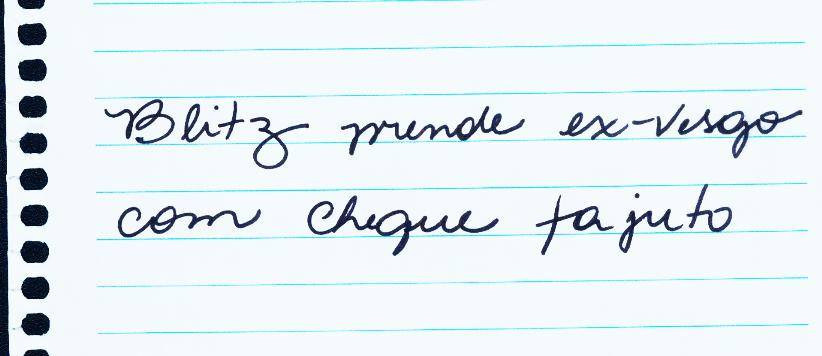 Blitz prende ex-vesgo
com cheque fajuto